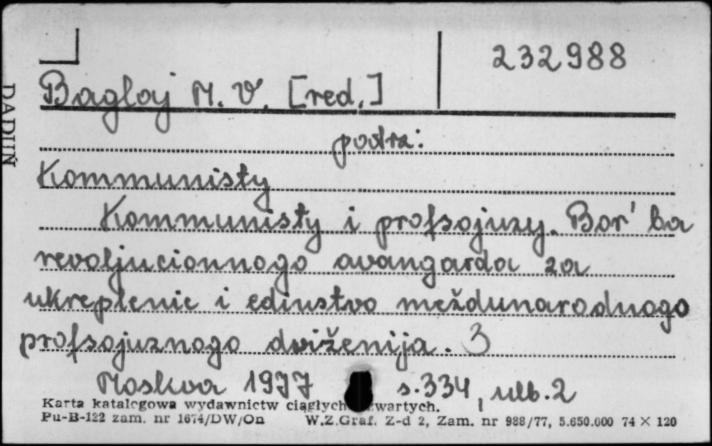 232988
Bagloj M. V. [red.]
DADUŃ
podrz:
Kommunisty
Kommunisty i profsojuzy. Bor'ba
revoljucionnogo avangarda za
ukreplenie i edinstvo meždunarodnogo
profsojuznogo dviženija. 3
Moskva 1977 s.334, ulb.2
Karta katalogowa wydawnictw ciągłych wartych.
Pu-B-122 zam. nr 1674/DW/On W.Z.Graf. Z-d 2, Zam. nr 988/77, 5.650.000 74 × 120